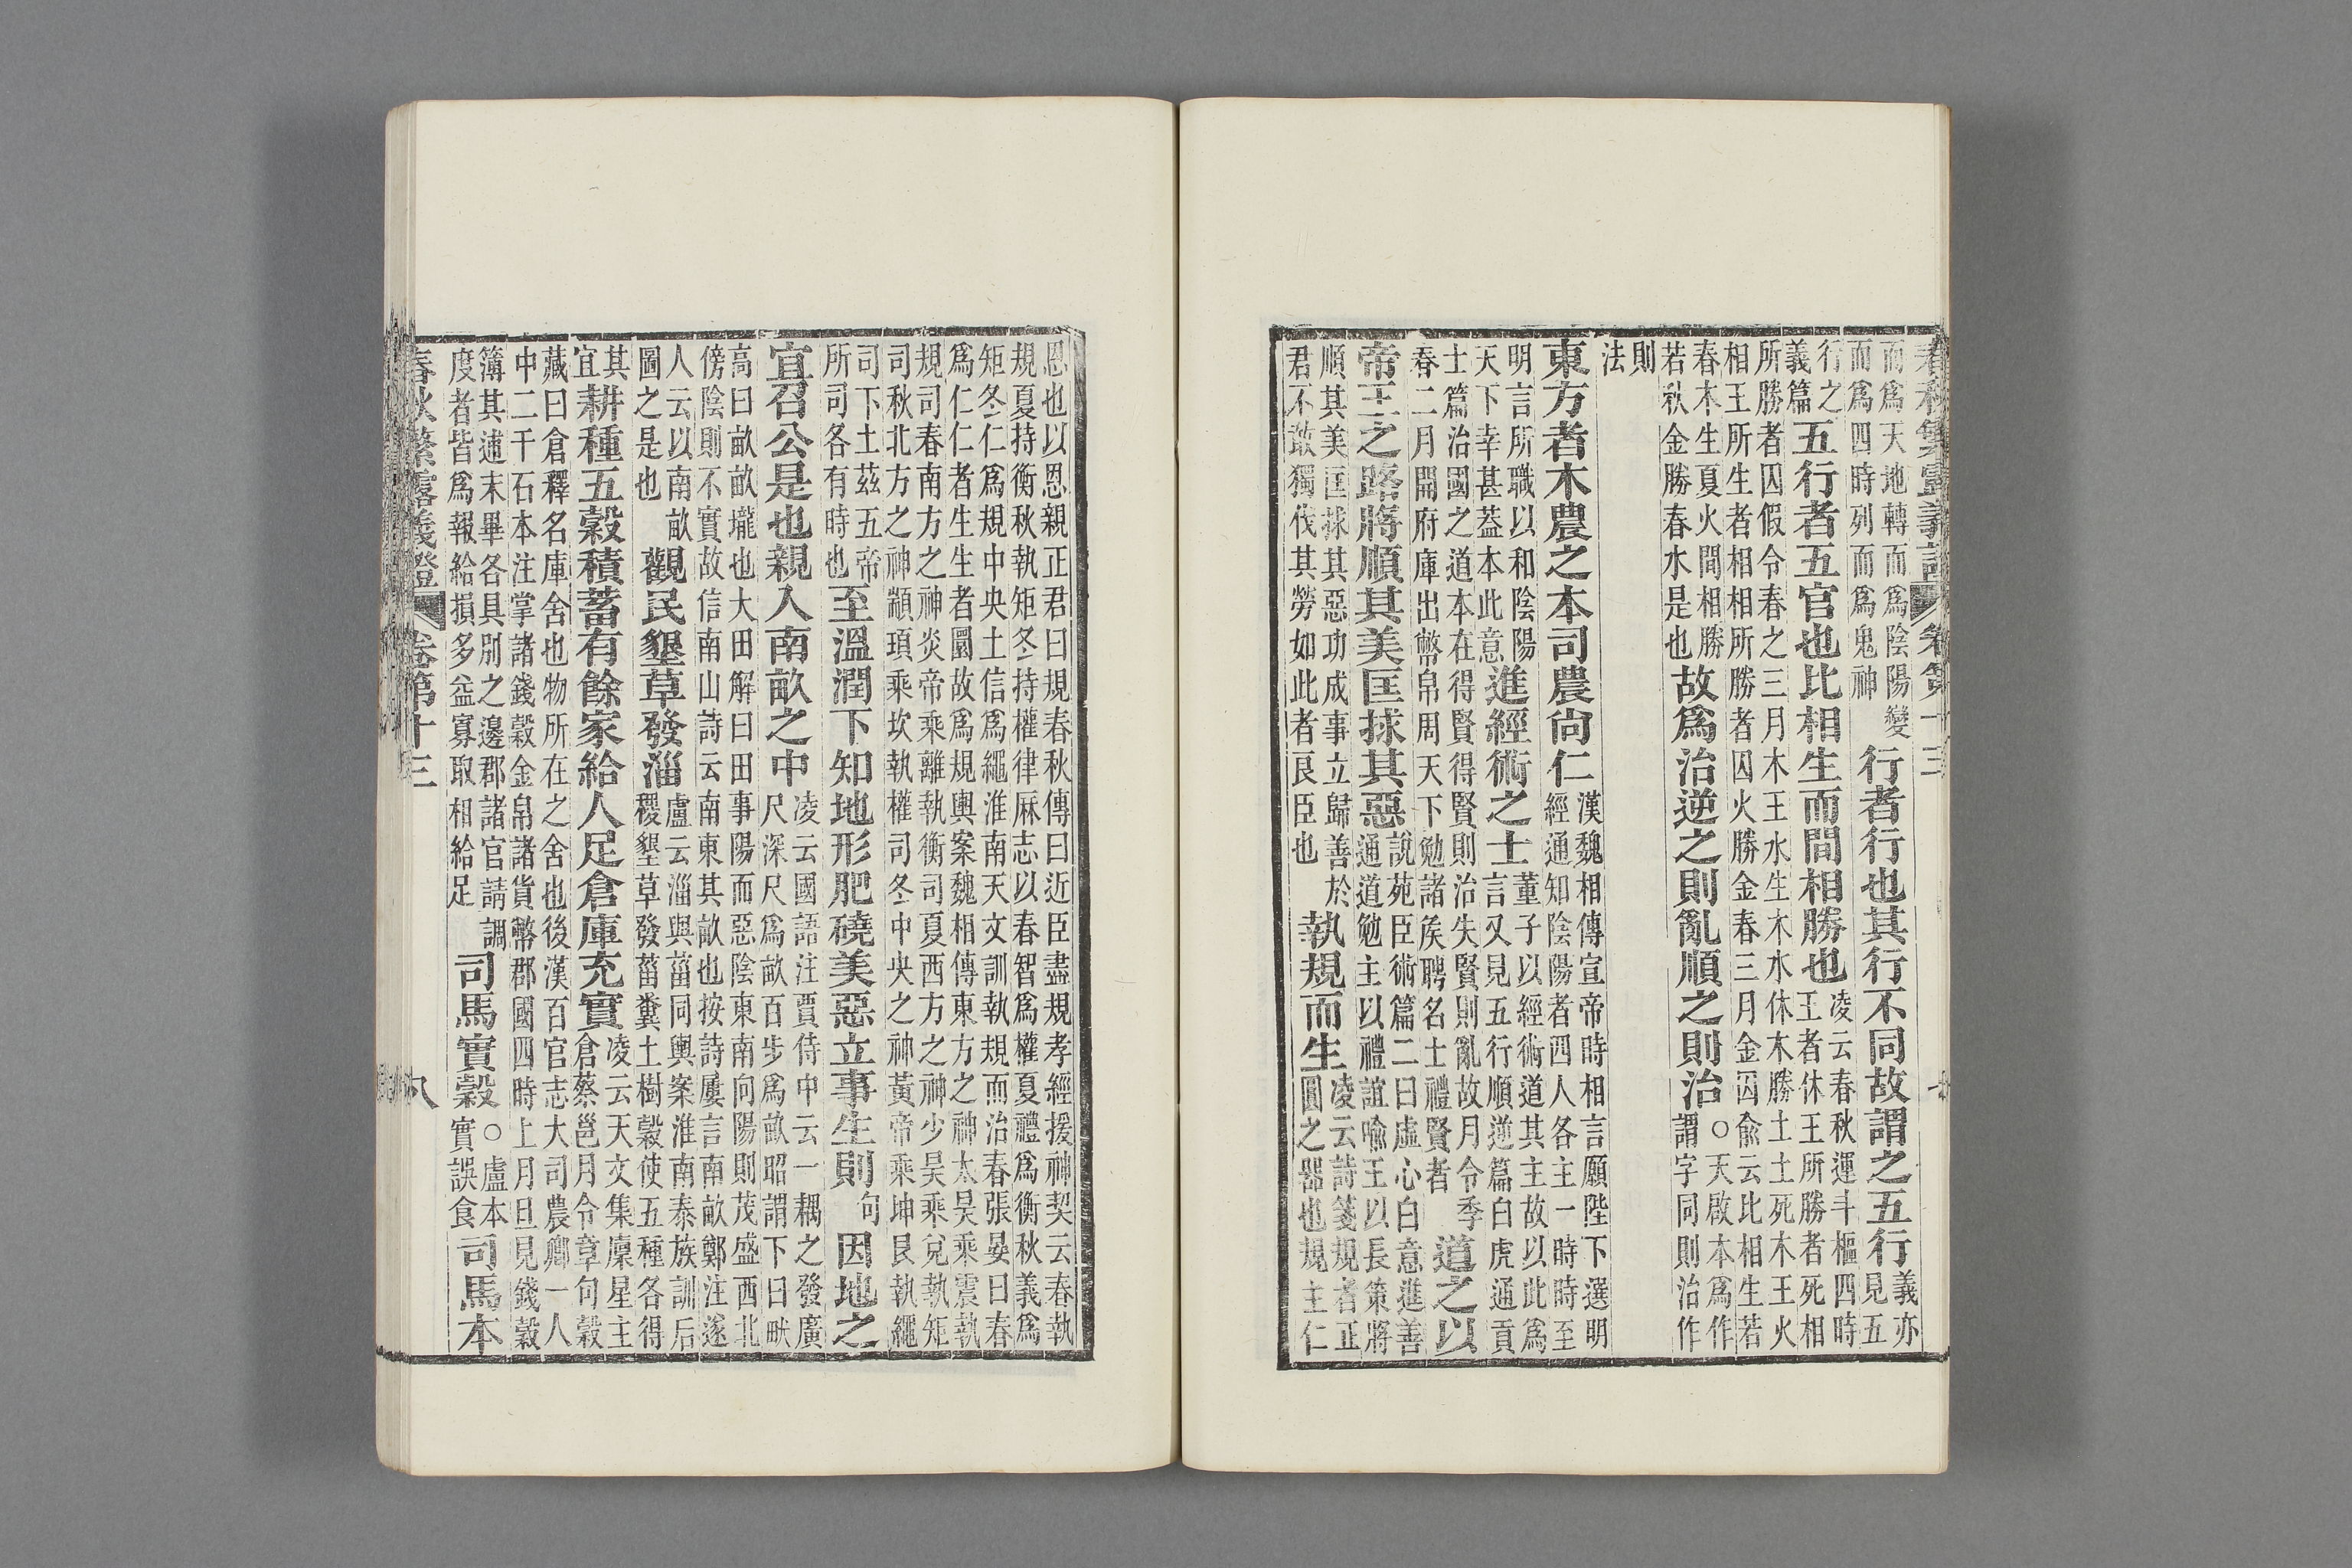 春秋繁露義證 卷第十三 七
而爲天地轉而爲陰陽變
而爲四時列而爲鬼神
行者行也其行不同故謂之五行
義亦
見五
行之
義篇
五行者五官也比相生而間相勝也
凌云春秋運斗樞四時
王者休王所勝者死相
所勝者囚假令春之三月木王水生木水休木勝土土死木王火
相王所生者相相所勝者囚火勝金春三月金囚兪云比相生若
春木生夏火間相勝
若秋金勝春水是也
故爲治逆之則亂順之則治
○天啟本爲作
謂字同則治作
則
法
東方者木農之本司農尚仁
漢魏相傳宣帝時相言願陛下選明
經通知陰陽者四人各主一時時至
明言所職以和陰陽
天下幸甚葢本此意
進經術之士
董子以經術道其主故以此爲
言又見五行順逆篇白虎通貢
士篇治國之道本在得賢得賢則治失賢則亂故月令季
春二月開府庫出幣帛周天下勉諸矦聘名士禮賢者
道之以
帝王之路將順其美匡捄其惡
說苑臣術篇二曰虛心白意進善
通道勉主以禮誼喻王以長策將
順其美匡捄其惡功成事立歸善於
君不敢獨伐其勞如此者良臣也
執規而生
凌云詩箋規者正
圓之器也規主仁
恩也以恩親正君曰規春秋傳曰近臣盡規孝經援神契云春執
規夏持衡秋執矩冬持權律厤志以春智爲權夏禮爲衡秋義爲
矩冬仁爲規中央土信爲繩淮南天文訓執規而治春張晏曰春
爲仁仁者生生者圜故爲規輿案魏相傳東方之神太昊乘震執
規司春南方之神炎帝乘離執衡司夏西方之神少昊乘兌執矩
司秋北方之神顓頊乘坎執權司冬中央之神黃帝乘坤艮執繩
司下土茲五帝
所司各有時也
至溫潤下知地形肥磽美惡立事生則
句
因地之
宜召公是也親入南畝之中
凌云國語注賈侍中云一耦之發廣
尺深尺爲畝百步爲畝昭謂下曰畎
高曰畝畝壠也大田解曰田事陽而惡陰東南向陽則茂盛西北
傍陰則不實故信南山詩云南東其畝也按詩屢言南畝鄭注遂
人云以南畝
圖之是也
觀民墾草發淄
盧云淄與菑同輿案淮南泰族訓后
稷墾草發菑糞土樹穀使五種各得
其
宜
耕種五穀積蓄有餘家給人足倉庫充實
凌云天文集廩星主
倉蔡邕月令章句穀
藏曰倉釋名庫舍也物所在之舍也後漢百官志大司農卿一人
中二千石本注掌諸錢穀金帛諸貨幣郡國四時上月旦見錢穀
簿其逋末畢各具別之邊郡諸官請調
度者皆爲報給損多益寡取相給足
司馬實穀
○盧本
實誤食
司馬本
春秋繁露義證 卷第十三 八